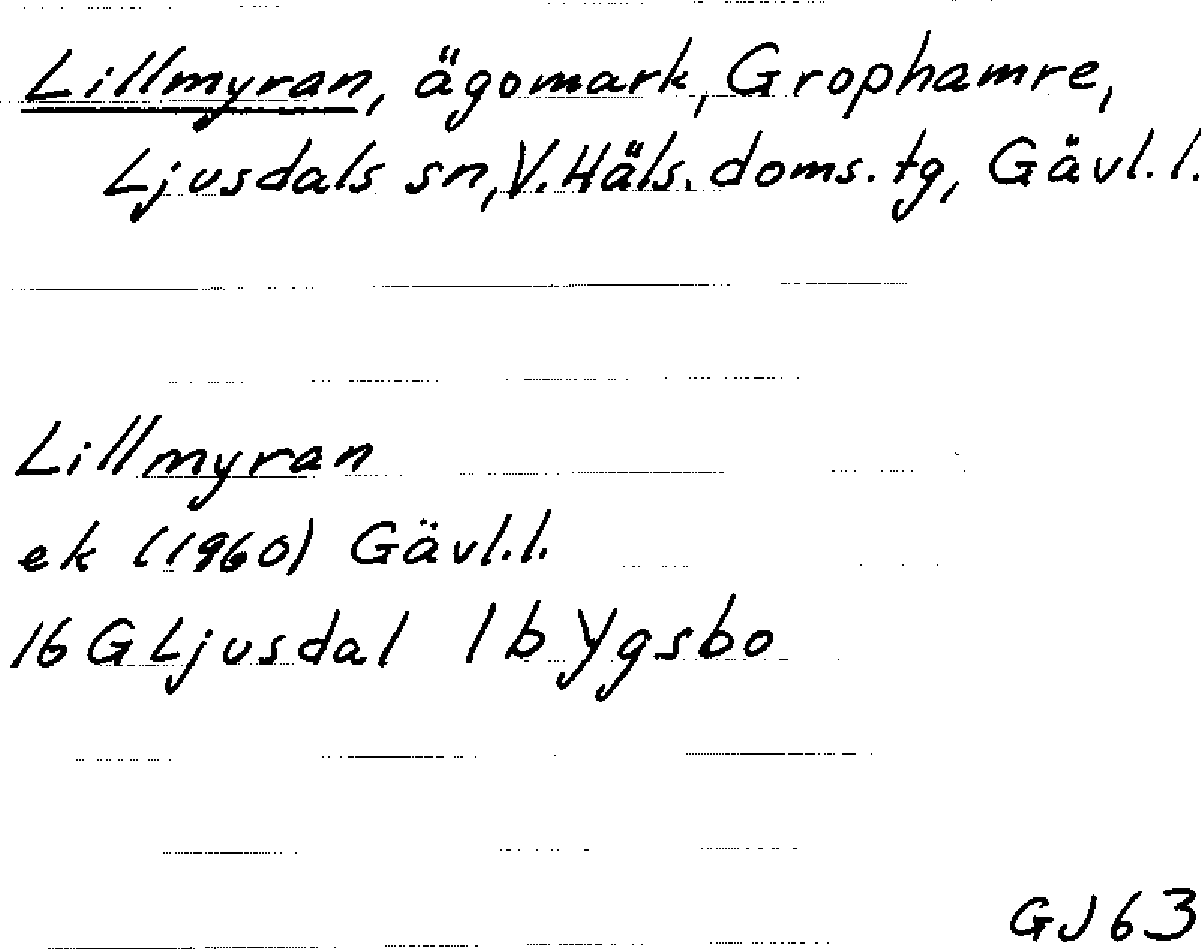 Lillmyran, ägomark, Grophamre,
Ljusdals sn, V. Häls. doms. tg, Gävl. l.
Lillmyran
ek (1960) Gävl. l.
16 G Ljusdal 1 b Ygsbo
GJ 63